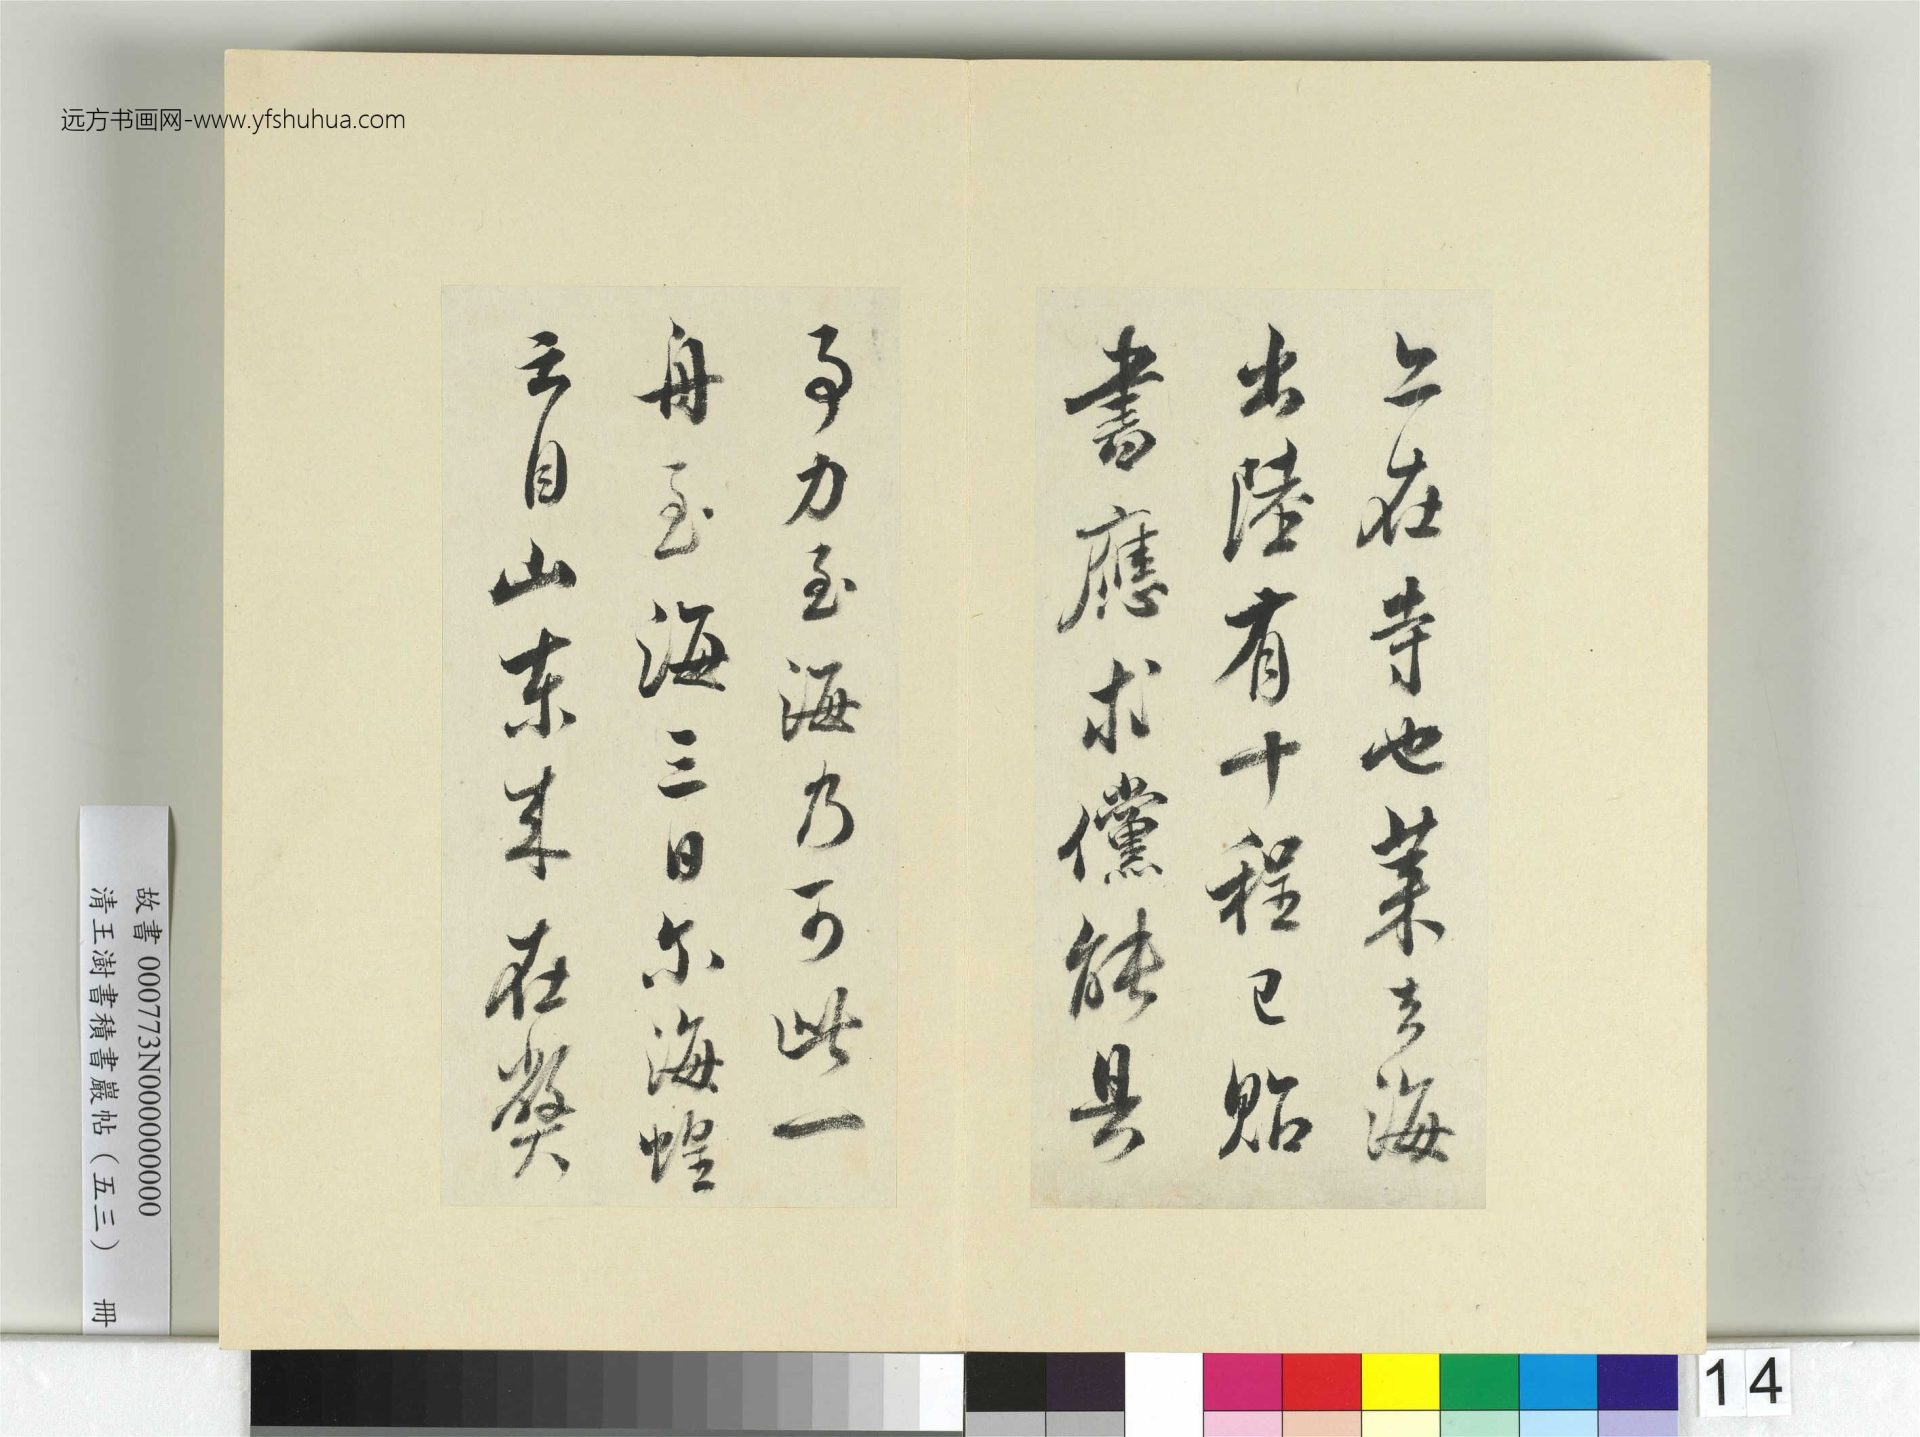 远方书画网-www.yfshuhua.com
上在寺也萊去海
出陸有十程已貽
書應求儻能具
事力至海乃可此一
舟至海三日尔海蝗
云自山東来在弊
故書 000773N000000000
清王澍書積書巖帖（五三） 冊
14